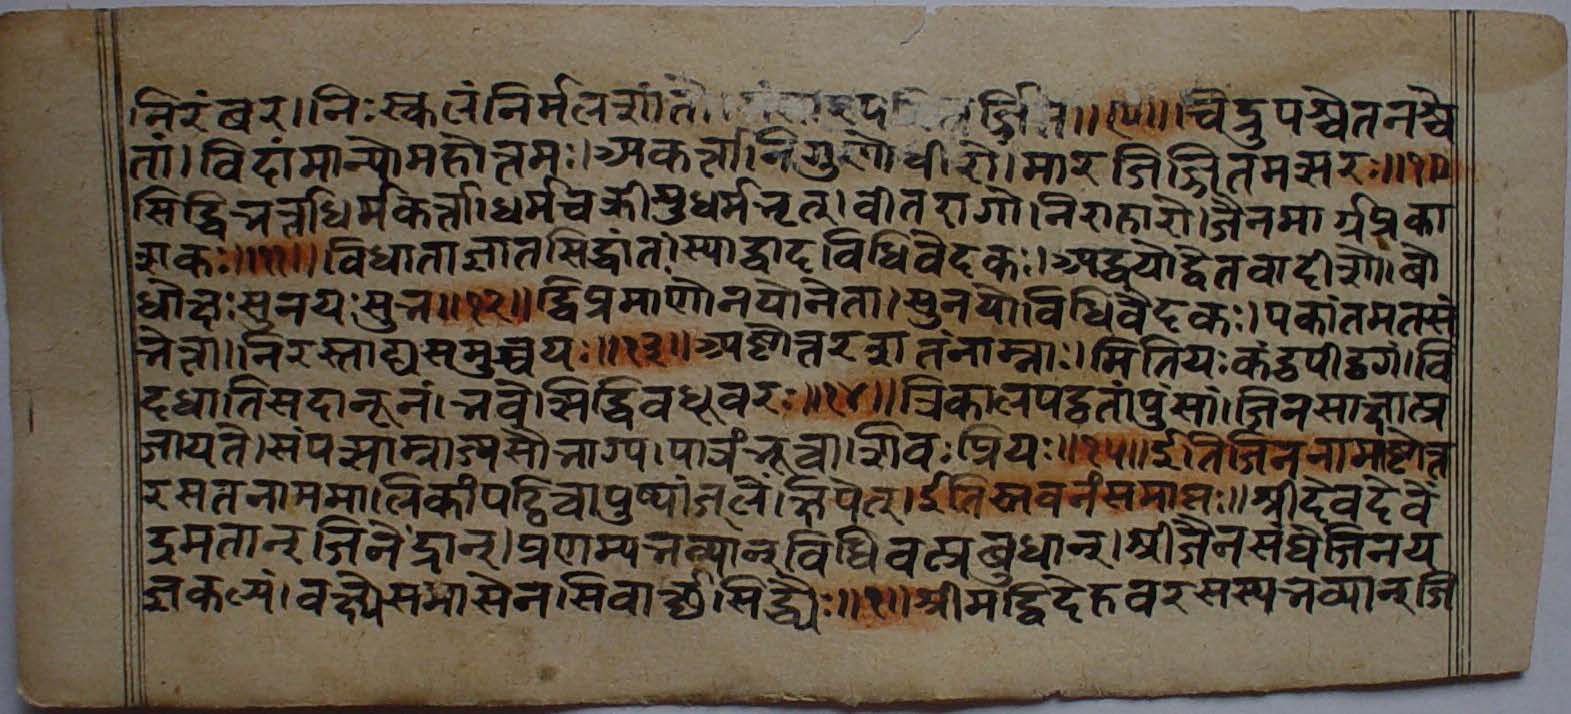 निरंबर।निःस्कलंनिर्मलशांतौ। ॥१०॥चिद्रुपश्चैतनश्चै
तां।विदांमान्यौमहौत्तमः।अकर्त्तानिगुणौधीरौ।मारजिज्जितमत्सरः॥११
सिद्धिभर्त्ताधर्मकर्त्ता।धर्मचक्रीशुधर्मभृत्।वीतरागौ।निराहारौ।जैनमार्गप्रका
शकः॥११॥विधाताज्ञातसिद्धांतां।स्याद्वादविधिवैदकः।अद्वयौद्वैतवादीशौ।बौ
धौक्षःसुनयःसुभ॥१२॥द्विप्रमाणौनयौनैता।सुनयौविधिवैदकः।एकांतमतसं
भेत्ता।निरस्ताद्यसमुच्चयः॥१३॥अष्टौत्तरशतंनाम्नाः।मितियःकंठपीठगं।वि
दधातिसदानूनं।भवै।सिद्धिवधूवरः॥१४॥त्रिकालपठ्ठतांपुंसां।जिनसाक्षात्प्र
जायतै।संपत्साम्राज्यसौभाग्य।पात्रंभूत्वा।शिवःप्रियः॥१५॥ईतिजिननामाष्टौत्त
रसतनाममालिकांपठित्वापुष्पांजलिंक्षिपेत्।ईतिस्तवनंसमाप्तः॥श्रीदेवदेवें
द्रमतान्जिनैंद्रान्।प्रणम्यभव्यान्विधिवत्प्रबुधान्।श्रीजैनसंघैजिनय
ज्ञकल्पं।वक्ष्यैसमासैनसिवार्थसिद्ध्यैः॥१॥श्रीमद्विदेहवरसस्यभव्यान्जि